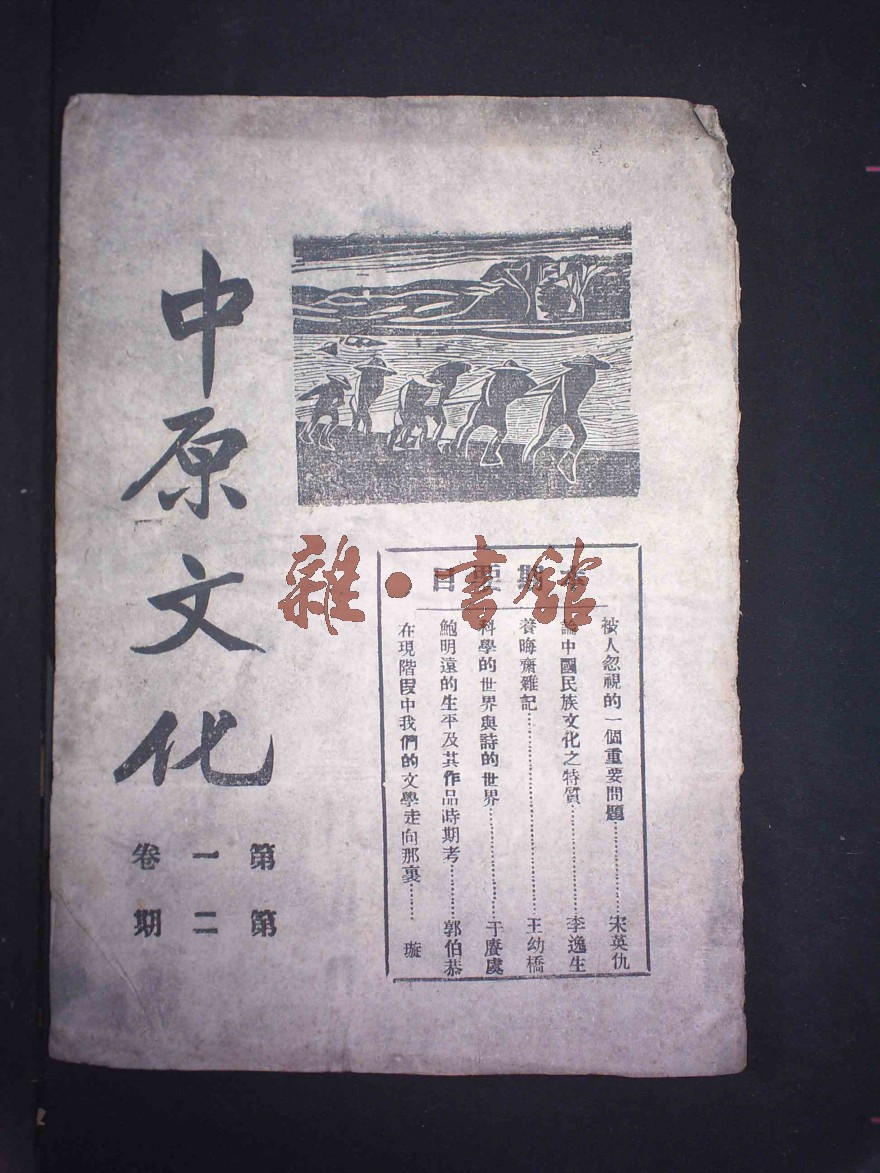 中原文化
第一卷
第二期
本期要目
被人忽視的一個重要問題……………宋英仇
論中國民族文化之特質………………李逸生
養晦齋雜記……………………………王幼橋
科學的世界與詩的世界………………于賡虞
鮑明遠的生平及其作品時期考………郭伯恭
在現階段中我們的文學走向那裏………璇
雜·書館